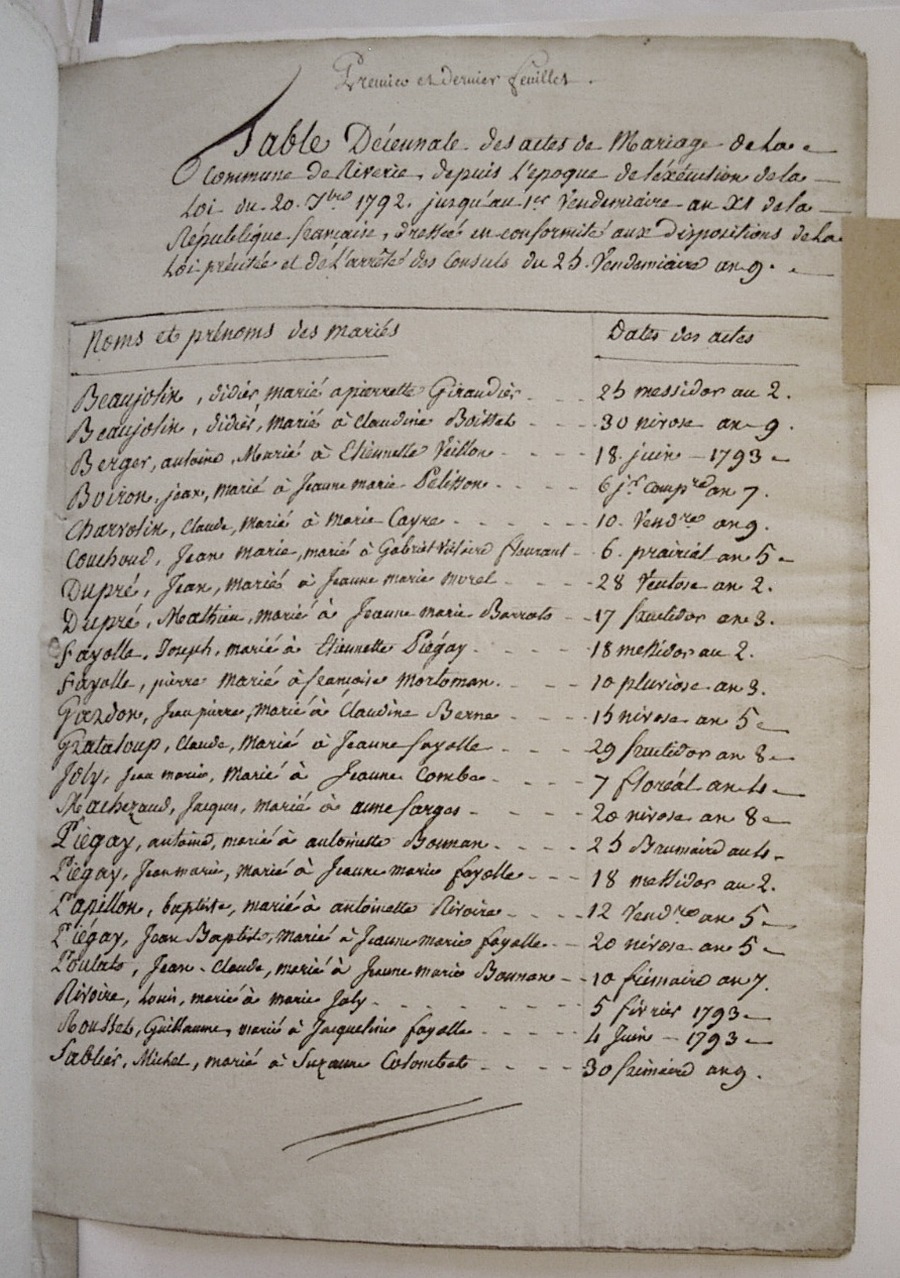 Premier et dernier feuillet.
Table Décennale des actes de Mariage de la
Commune de Riverie, depuis L'epoque de L'éxécution de la
Loi du 20. 7bre 1792. jusqu'au 1er Vendemiaire an XI de la
République française, dressée en conformité aux dispositions de la
Loi précitée et de L'arrêté des Consuls du 25. Vendemiaire an 9.
Noms et prénoms des mariés Dates des actes
Beaujolin, didier marié a pierrette Giraudier 25 messidor an 2.
Beaujolin, didier, marié à Claudine Boisset 30 nivose an 9.
Berger, antoine, Marié à Etiennette Veillon 18. juin 1793
Boiron, jean, marié à Jeanne marie Pélisson 6 jr. compre an 7.
Charvolin, Claude, Marié à Marie Cayre 10. Vendre an 9.
Couchoud, Jean Marie, marié à Gabriel Victoire fleurant 6. prairial an 5
Dupré, Jean, Marié à Jeanne marie morel 28 Ventose an 2.
Dupré, Mathieu, marié à Jeanne marie Barrat 17 fructidor an 3.
Fayolle, Joseph, marié à Etiennette Piégay 18 messidor an 2.
Fayolle, pierre Marié à françoise mortoman 10 pluviose an 3.
Gazdon, Jean pierre, marié à Claudine Berne 15 nivose an 5
Grataloup, Claude, Marié à Jeanne fayolle 29 fructidor an 8
Joly, Jean marie, Marié à Jeanne Combe 7 floréal an 4
Machezaud, Jacques, marié à anne farges 20 nivose an 8
Piégay, antoine, marié à antoinette Bonnan 25 Brumaire an 4
Piégay, Jean marie, Marié à Jeanne marie fayolle 18 messidor an 2.
Papillon, baptiste, marié à antoinette Rivoire 12 Vendre an 5
Piégay, Jean Baptiste, Marié à Jeanne marie fayolle 20 nivose an 5
Poulat, Jean-Claude, marié à Jeanne marie Bonnan 10 frimaire an 7.
Rivoire, Louis, marié à marie Joly 5 février 1793
Rousset, Guillaume, marié à Jacqueline fayolle 4 Juin 1793
Sablier, Michel, marié à Suzanne Colombet 30 frimaire an 9.